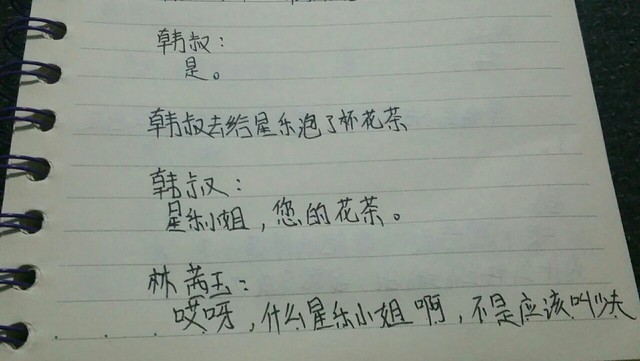 韩叔：
是。
韩叔去给星乐泡了杯花茶
韩叔：
星乐小姐，您的花茶。
林芮玉：
哎呀，什么星乐小姐啊，不是应该叫少夫